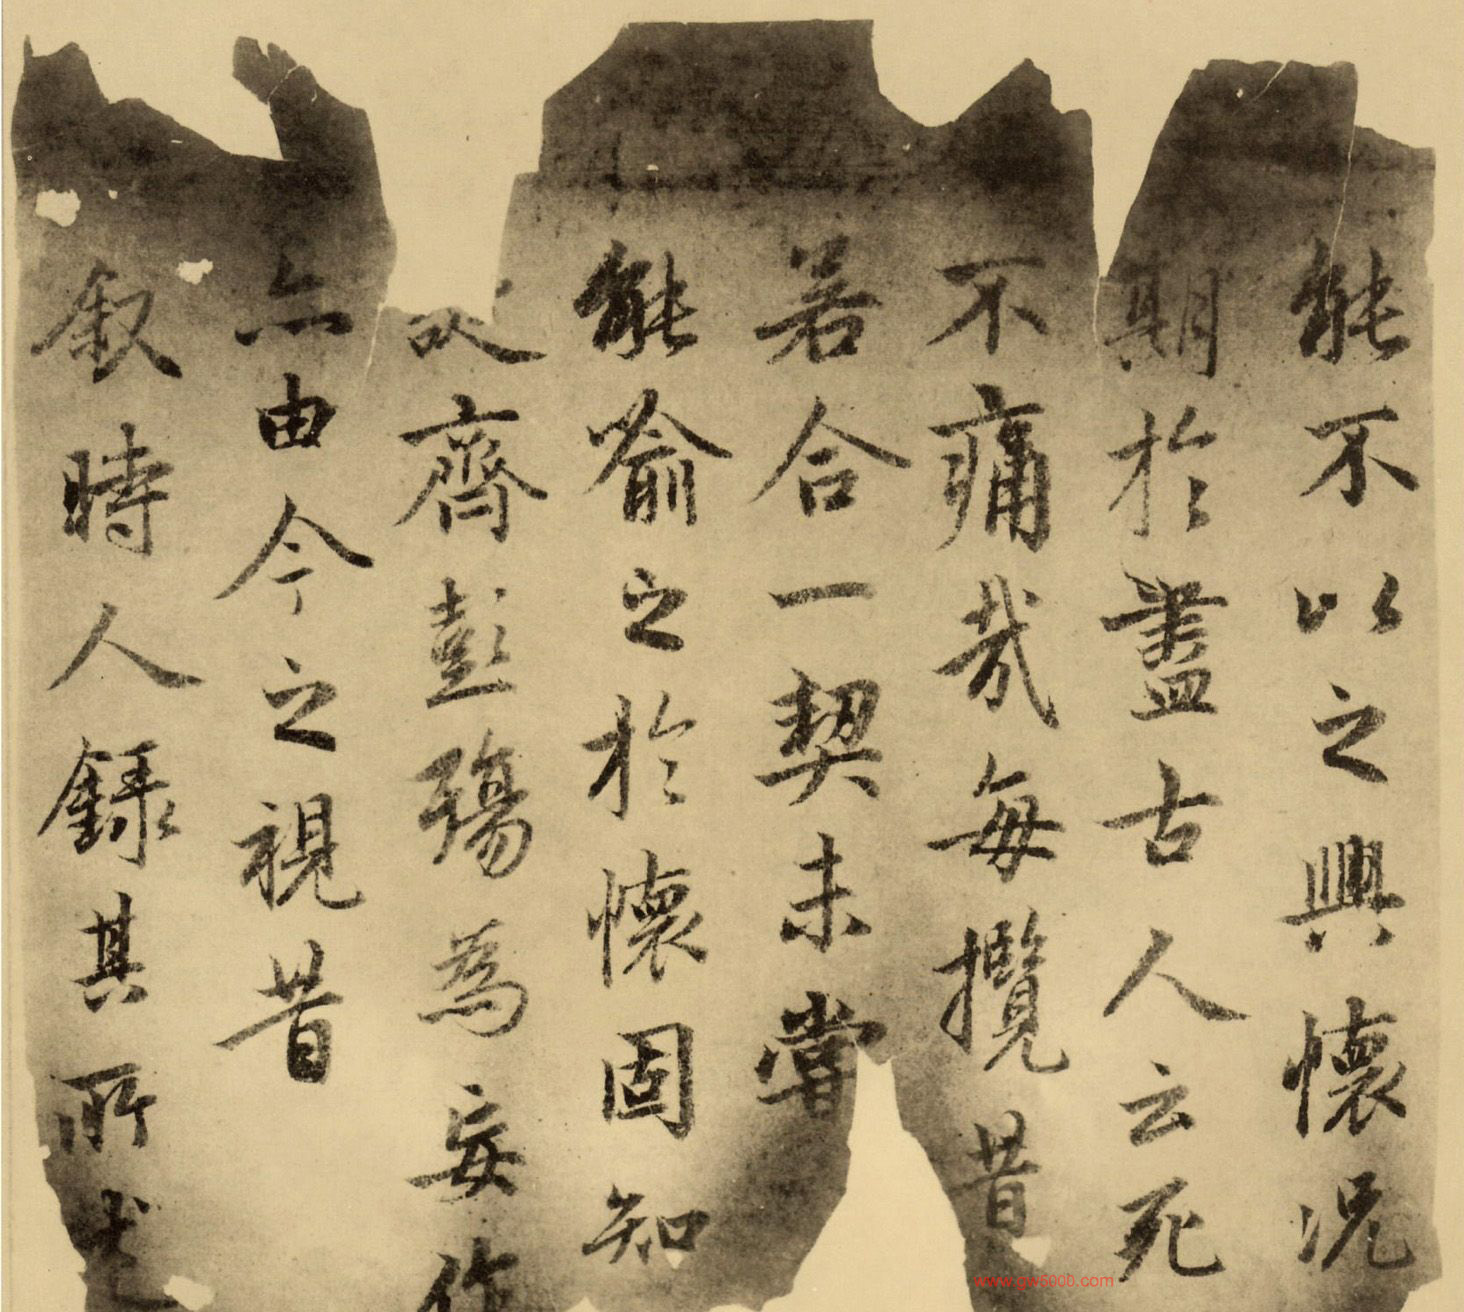 能不以之興懷況
期於盡古人云死
不痛哉每攬昔
若合一契未嘗
能喻之於懷固知
齊彭殤為妄作
由今之視昔
敘時人錄其所
www.gw5000.com